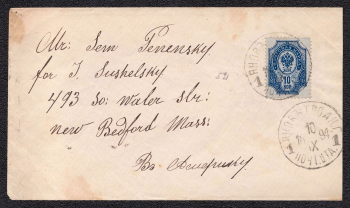 Mr: Sem Penensky
for J. Sushelsky
493 So: water str:
new Bedford Mass:
Въ Америку
10
1
10
IX
1